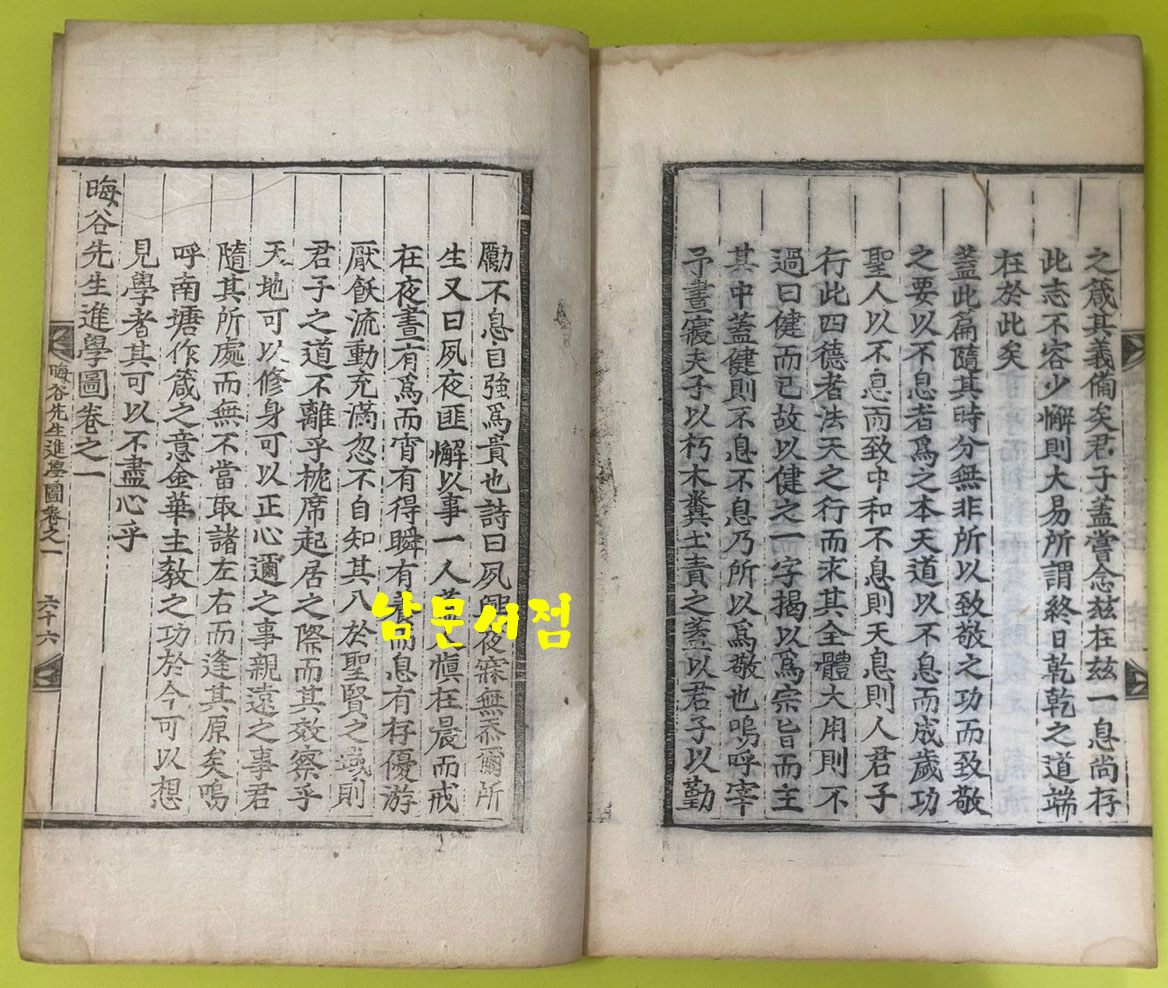 之箴其義備矣君子蓋嘗念玆在玆一息尚存
此志不容少懈則大易所謂終日乾乾之道端
在於此矣
蓋此篇隨其時分無非所以致敬之功而致敬
之要以不息者爲之本天道以不息而成歲功
聖人以不息而致中和不息則天息則人君子
行此四德者法天之行而求其全體大用則不
過曰健而已故以健之一字揭以爲宗旨而主
其中蓋健則不息不息乃所以爲敬也嗚呼宰
予晝寢夫子以朽木糞土責之蓋以君子以勤
勵不息自強爲貴也詩曰夙興夜寐無忝爾所
生又曰夙夜匪懈以事一人蓋 愼在晨而戒
在夜晝有爲而宵有得瞬有養而息有存優游
厭飫流動充滿忽不自知其入於聖賢之域則
君子之道不離乎枕席起居之際而其效察乎
天地可以修身可以正心邇之事親遠之事君
隨其所處而無不當取諸左右而逢其原矣嗚
呼南塘作箴之意金華主敎之功於今可以想
見學者其可以不盡心乎
晦谷先生進學圖卷之一
晦谷先生進學圖卷之一 六十六
남문서점